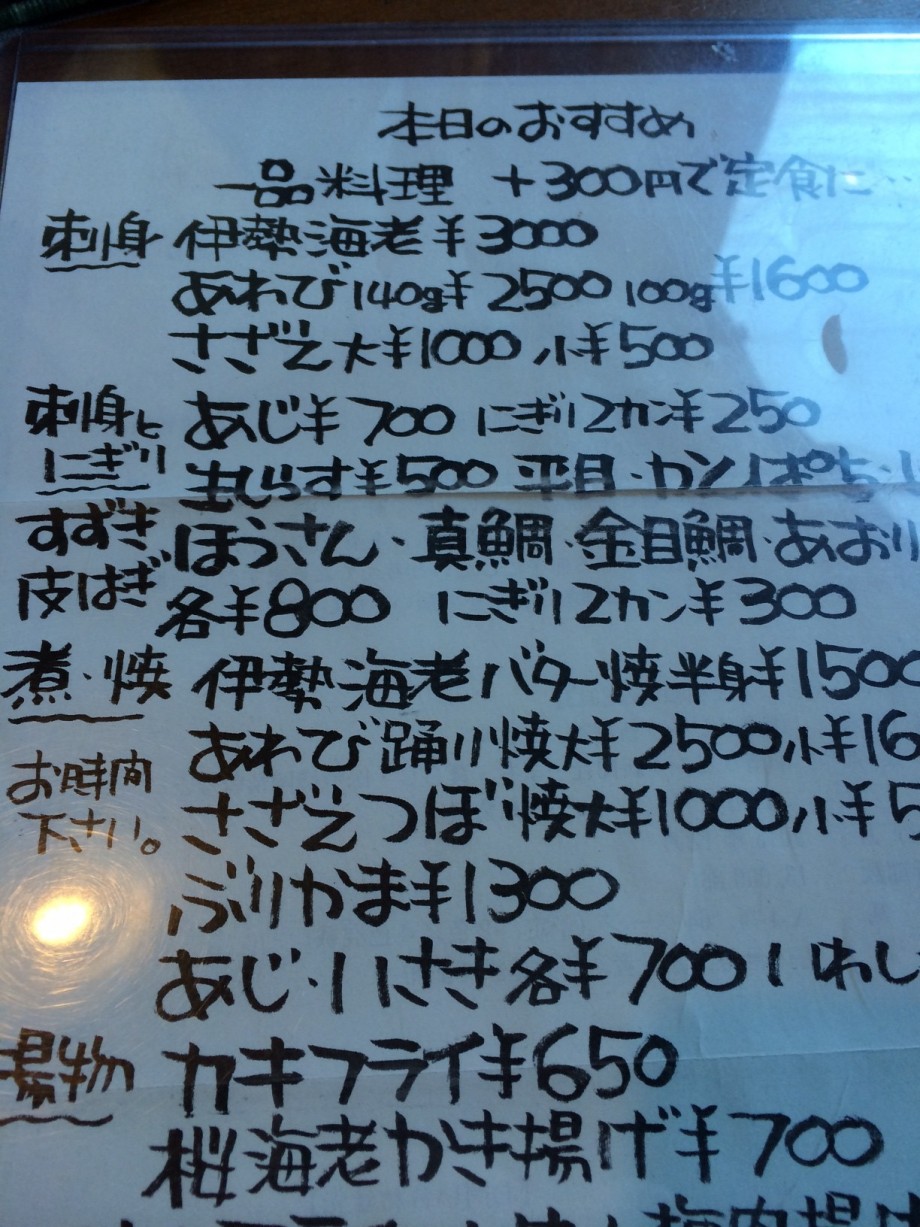 本日のおすすめ
一品料理 +300円で定食に…
刺身 伊勢海老¥3000
あわび140g¥2500 100g¥1600
さざえ大¥1000 小¥500
刺身と あじ¥700 にぎり2カン¥250
にぎり 生しらす¥500 平目・カンパチ・
すずき ほうさん・真鯛・金目鯛・あおり
皮はぎ 各¥800 にぎり2カン¥300
煮・焼 伊勢海老バター焼半身¥1500
あわび踊り焼大¥2500小¥16
お時間 下さい。
さざえつぼ焼大¥1000小¥5
ぶりかま¥1300
あじ・いさき各¥700 いわし
揚物 カキフライ¥650
桜海老かき揚げ¥700